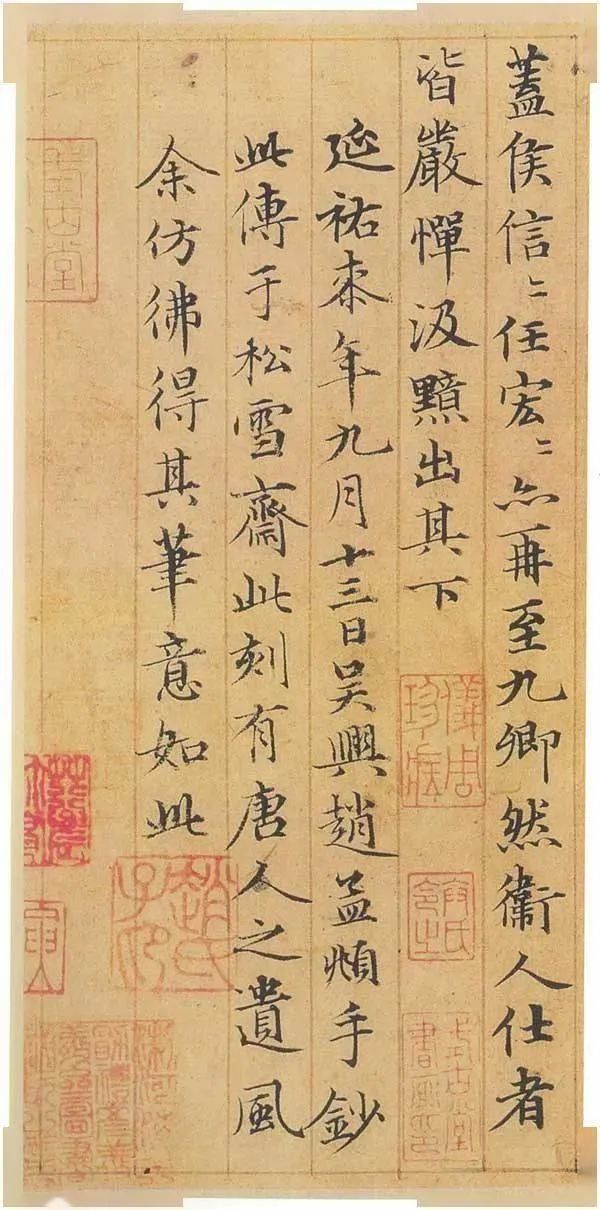 蓋侯信〻任宏〻亦再至九卿然衞人仕者
皆嚴憚汲黯出其下
延祐柒年九月十三日吳興趙孟頫手鈔
此傳于松雪齋此刻有唐人之遺風
余仿彿得其筆意如此
儀周珍藏
趙氏子昂